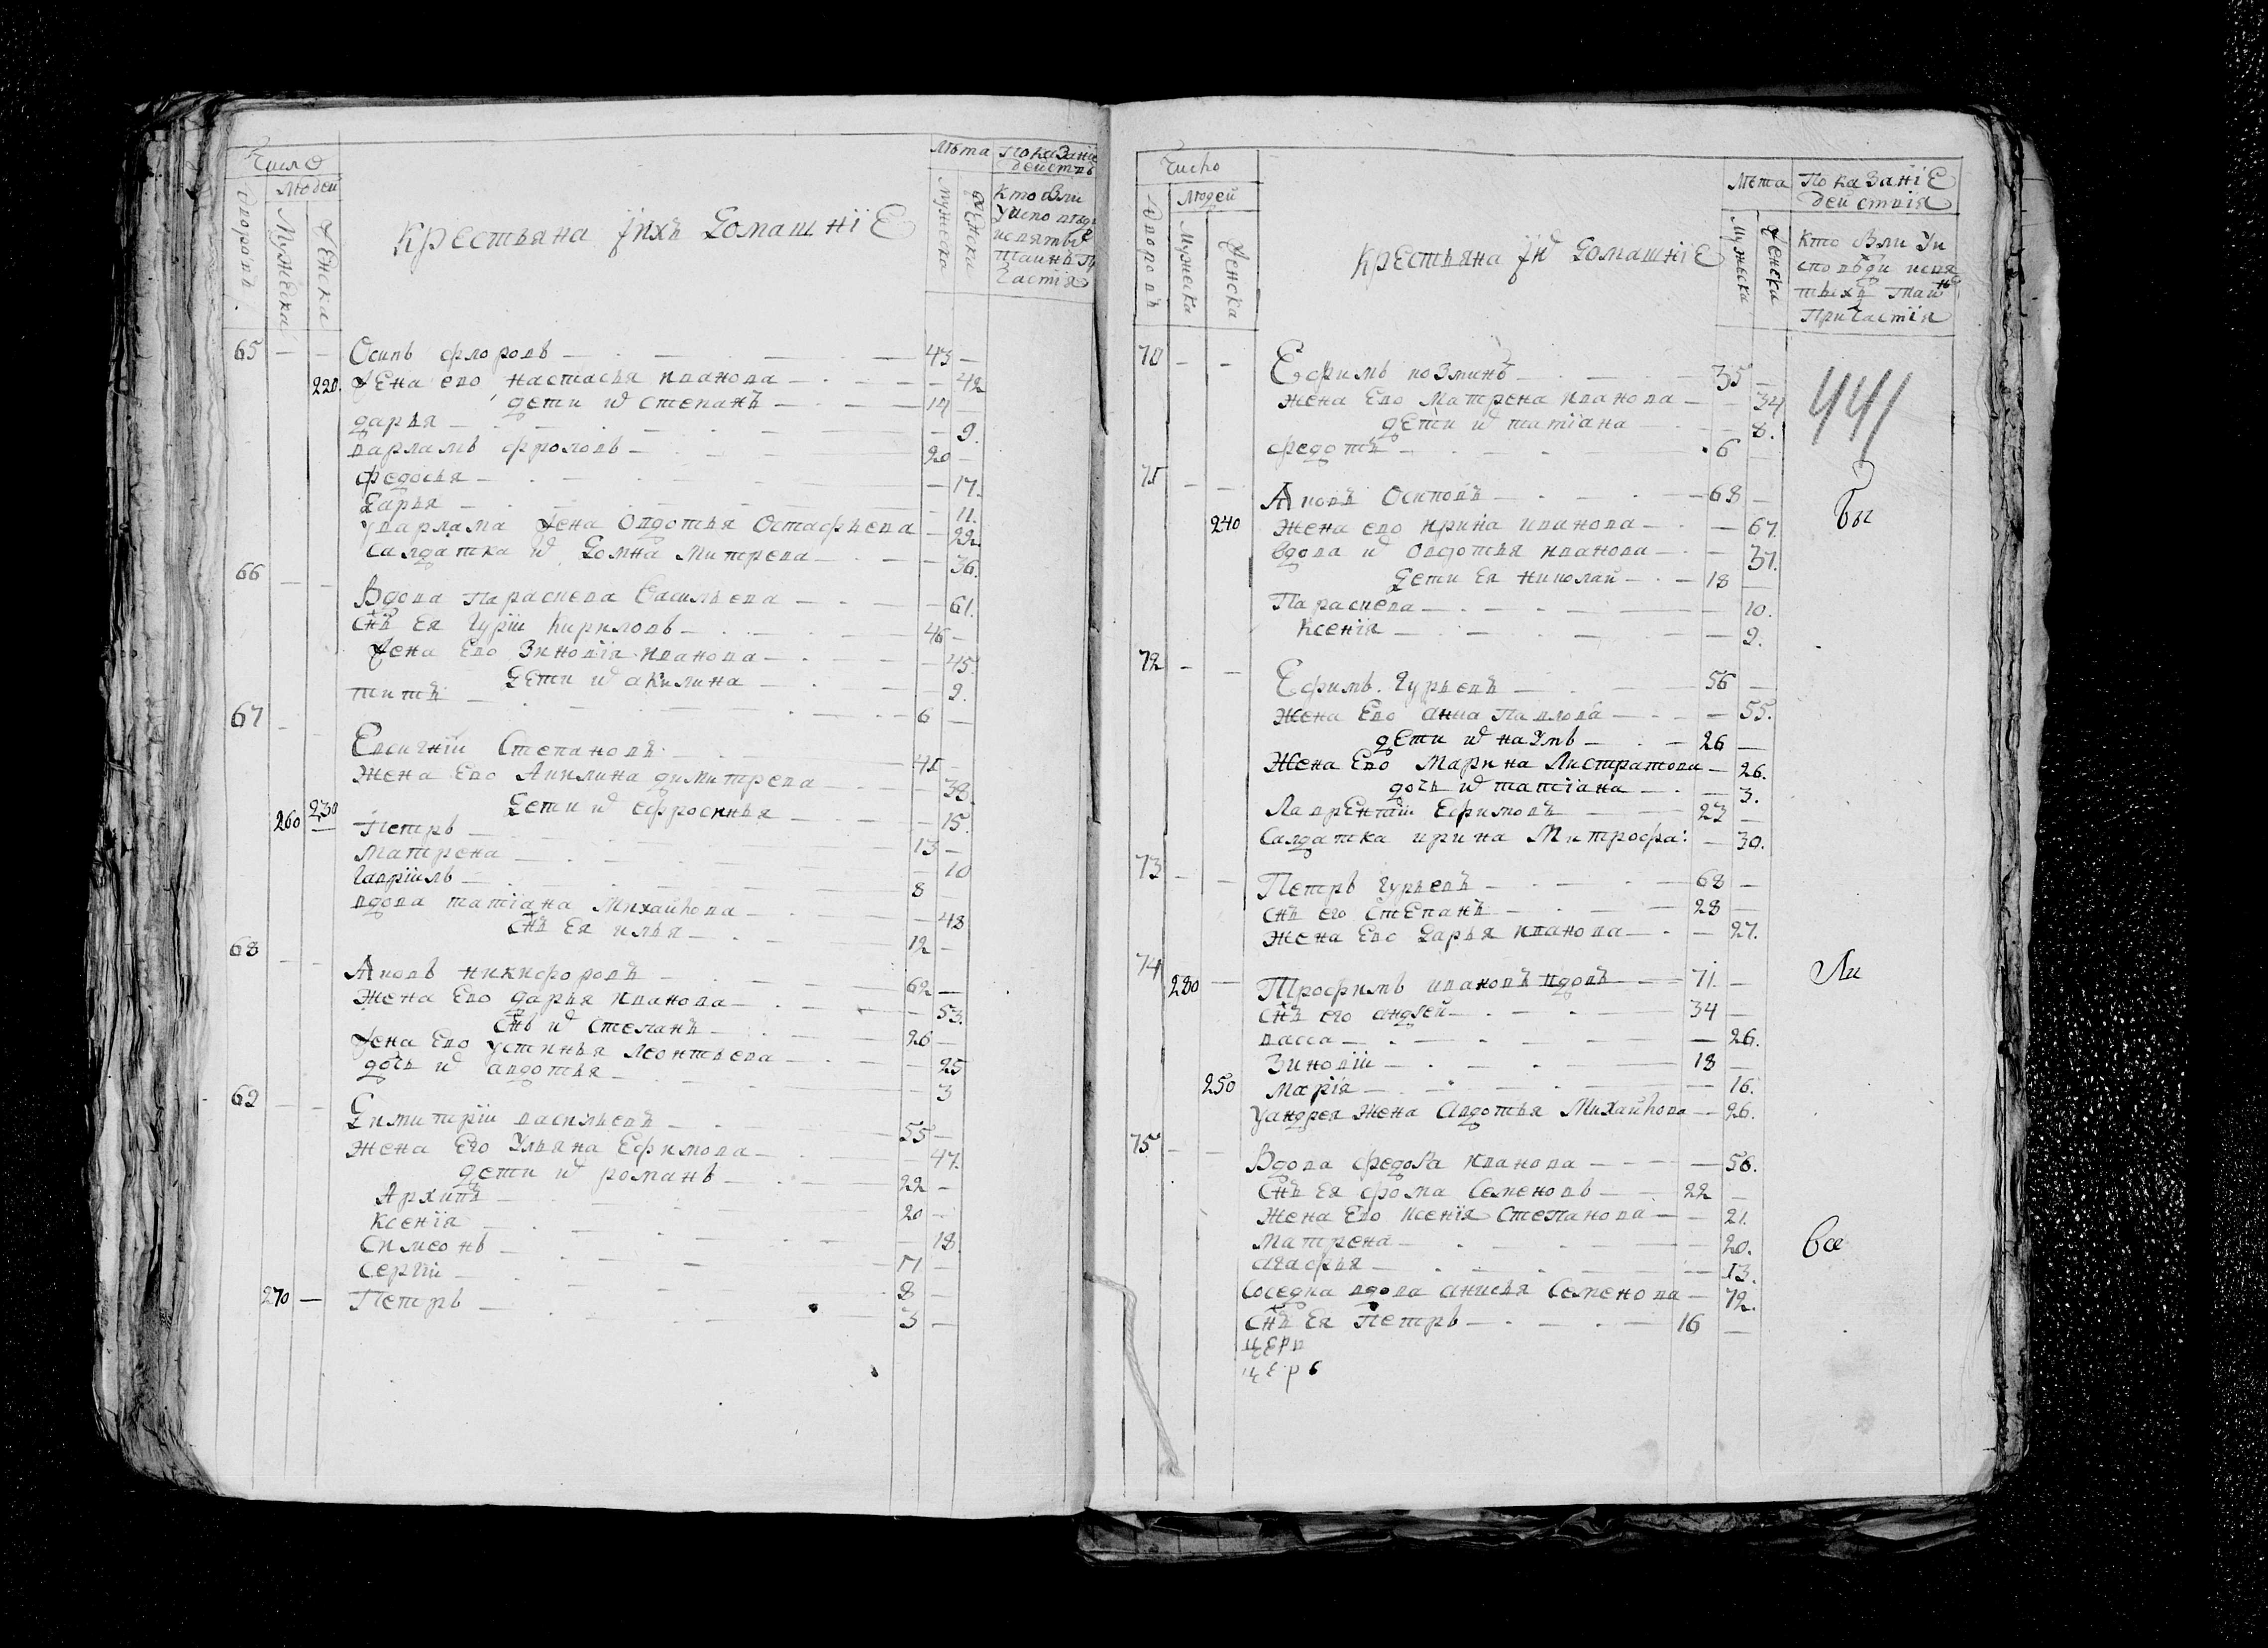 Число
Людей
Дворовъ
Мужеска
Женска
Крестьяна ихъ Домашнїе
Лѣта
Мужеска
Женски
Показанїе
действ
Кто были
у испо
и святы
таинъ Пр
частїя
65 — — Осипъ Флоровъ — 43 —
220. Жена ево Настасья Иванова — 42
дети их Степанъ — 14 —
дарья — 9.
варламъ Фроловъ — 20 —
Федосья — 17.
Дарья — 11.
у варлама Жена Овдотья Остафьева — 22.
Салдатка их Домна Митрева — 36.
66 — —
Вдова Параскева Васильева — 61.
Снъ Ея Гурїи Кириловъ — 46 —
Жена Ево Зиновїя Иванова — 45.
Дети их акилина — 9.
титъ — 6 —
67 — —
Евсигнїи Степановъ — 41 —
Жена Ево Акилина димитрева — 38.
Дети их Ефросинья — 15.
260 230 Петръ — 13 —
Матрена — 10
Гаврїилъ — 8
вдова татїана Михайлова — 48
Снъ Ея илья — 12 —
68 — —
Яковъ никифоровъ — 62 —
Жена Ево дарья Иванова — 53.
Снъ их Степанъ — 26 —
Жена Ево устинья Леонтьева — 25
дочь их авдотья — 3
69 — —
Димитрїи васильевъ — 55 —
Жена Его Ульяна Ефимова — 47.
дети их романъ — 22 —
Архипъ — 20 —
Ксенїя — 18
Симеонъ — 11 —
Сергїи — 8 —
270 — Петръ — 3 —
Число
Людей
Дворовъ
Мужеска
Женска
Крестьяна их Домашнїе
Лета
Мужеска
Женски
Показанїе
действїя
Кто были у и
споведи и свя
тыхъ тайнъ
Причастїя
441
70 — — Ефимъ Козминъ — 35 —
жена Ево Матрена Иванова — 34
дети их татїана — 8.
Федотъ — 6
71 — —
Яковъ Осиповъ — 68 — бы
240 Жена ево ирина иванова — 67.
вдова их Овдотья иванова — 37.
Дети Ея николай — 18 —
Параскева — 10.
Ксенїя — 9.
72 — —
Ефимъ Гурьевъ — 56 —
Жена Ево анна Павлова — 55.
дети их наумъ — 26 —
Жена Ево Марина Листратова — 26.
дочь их татїана — 3.
Лаврентїи Ефимовъ — 23 —
Салдатка ирина Митрофа: — 30.
73 — —
Петръ Гурьевъ — 68 —
снъ его Степанъ — 28 —
Жена Ево Дарья иванова — 27.
74
280 — Трофимъ ивановъ вдовъ — 71. — ли
Снъ его андрей — 34 —
васса — 26.
Зиновїи — 18 —
250 Марїя — 16.
У андрея Жена Авдотья Михайлова — 26.
75 — —
Вдова федора Иванова — 56.
Снъ Ея фома Семеновъ — 22 —
Жена Ево Ксенїя Степанова — 21.
Матрена — 20. все
агафья — 13.
Соседка вдова анисья Семенова — 72.
Снъ Ея Петръ — 16 —
церк
церб